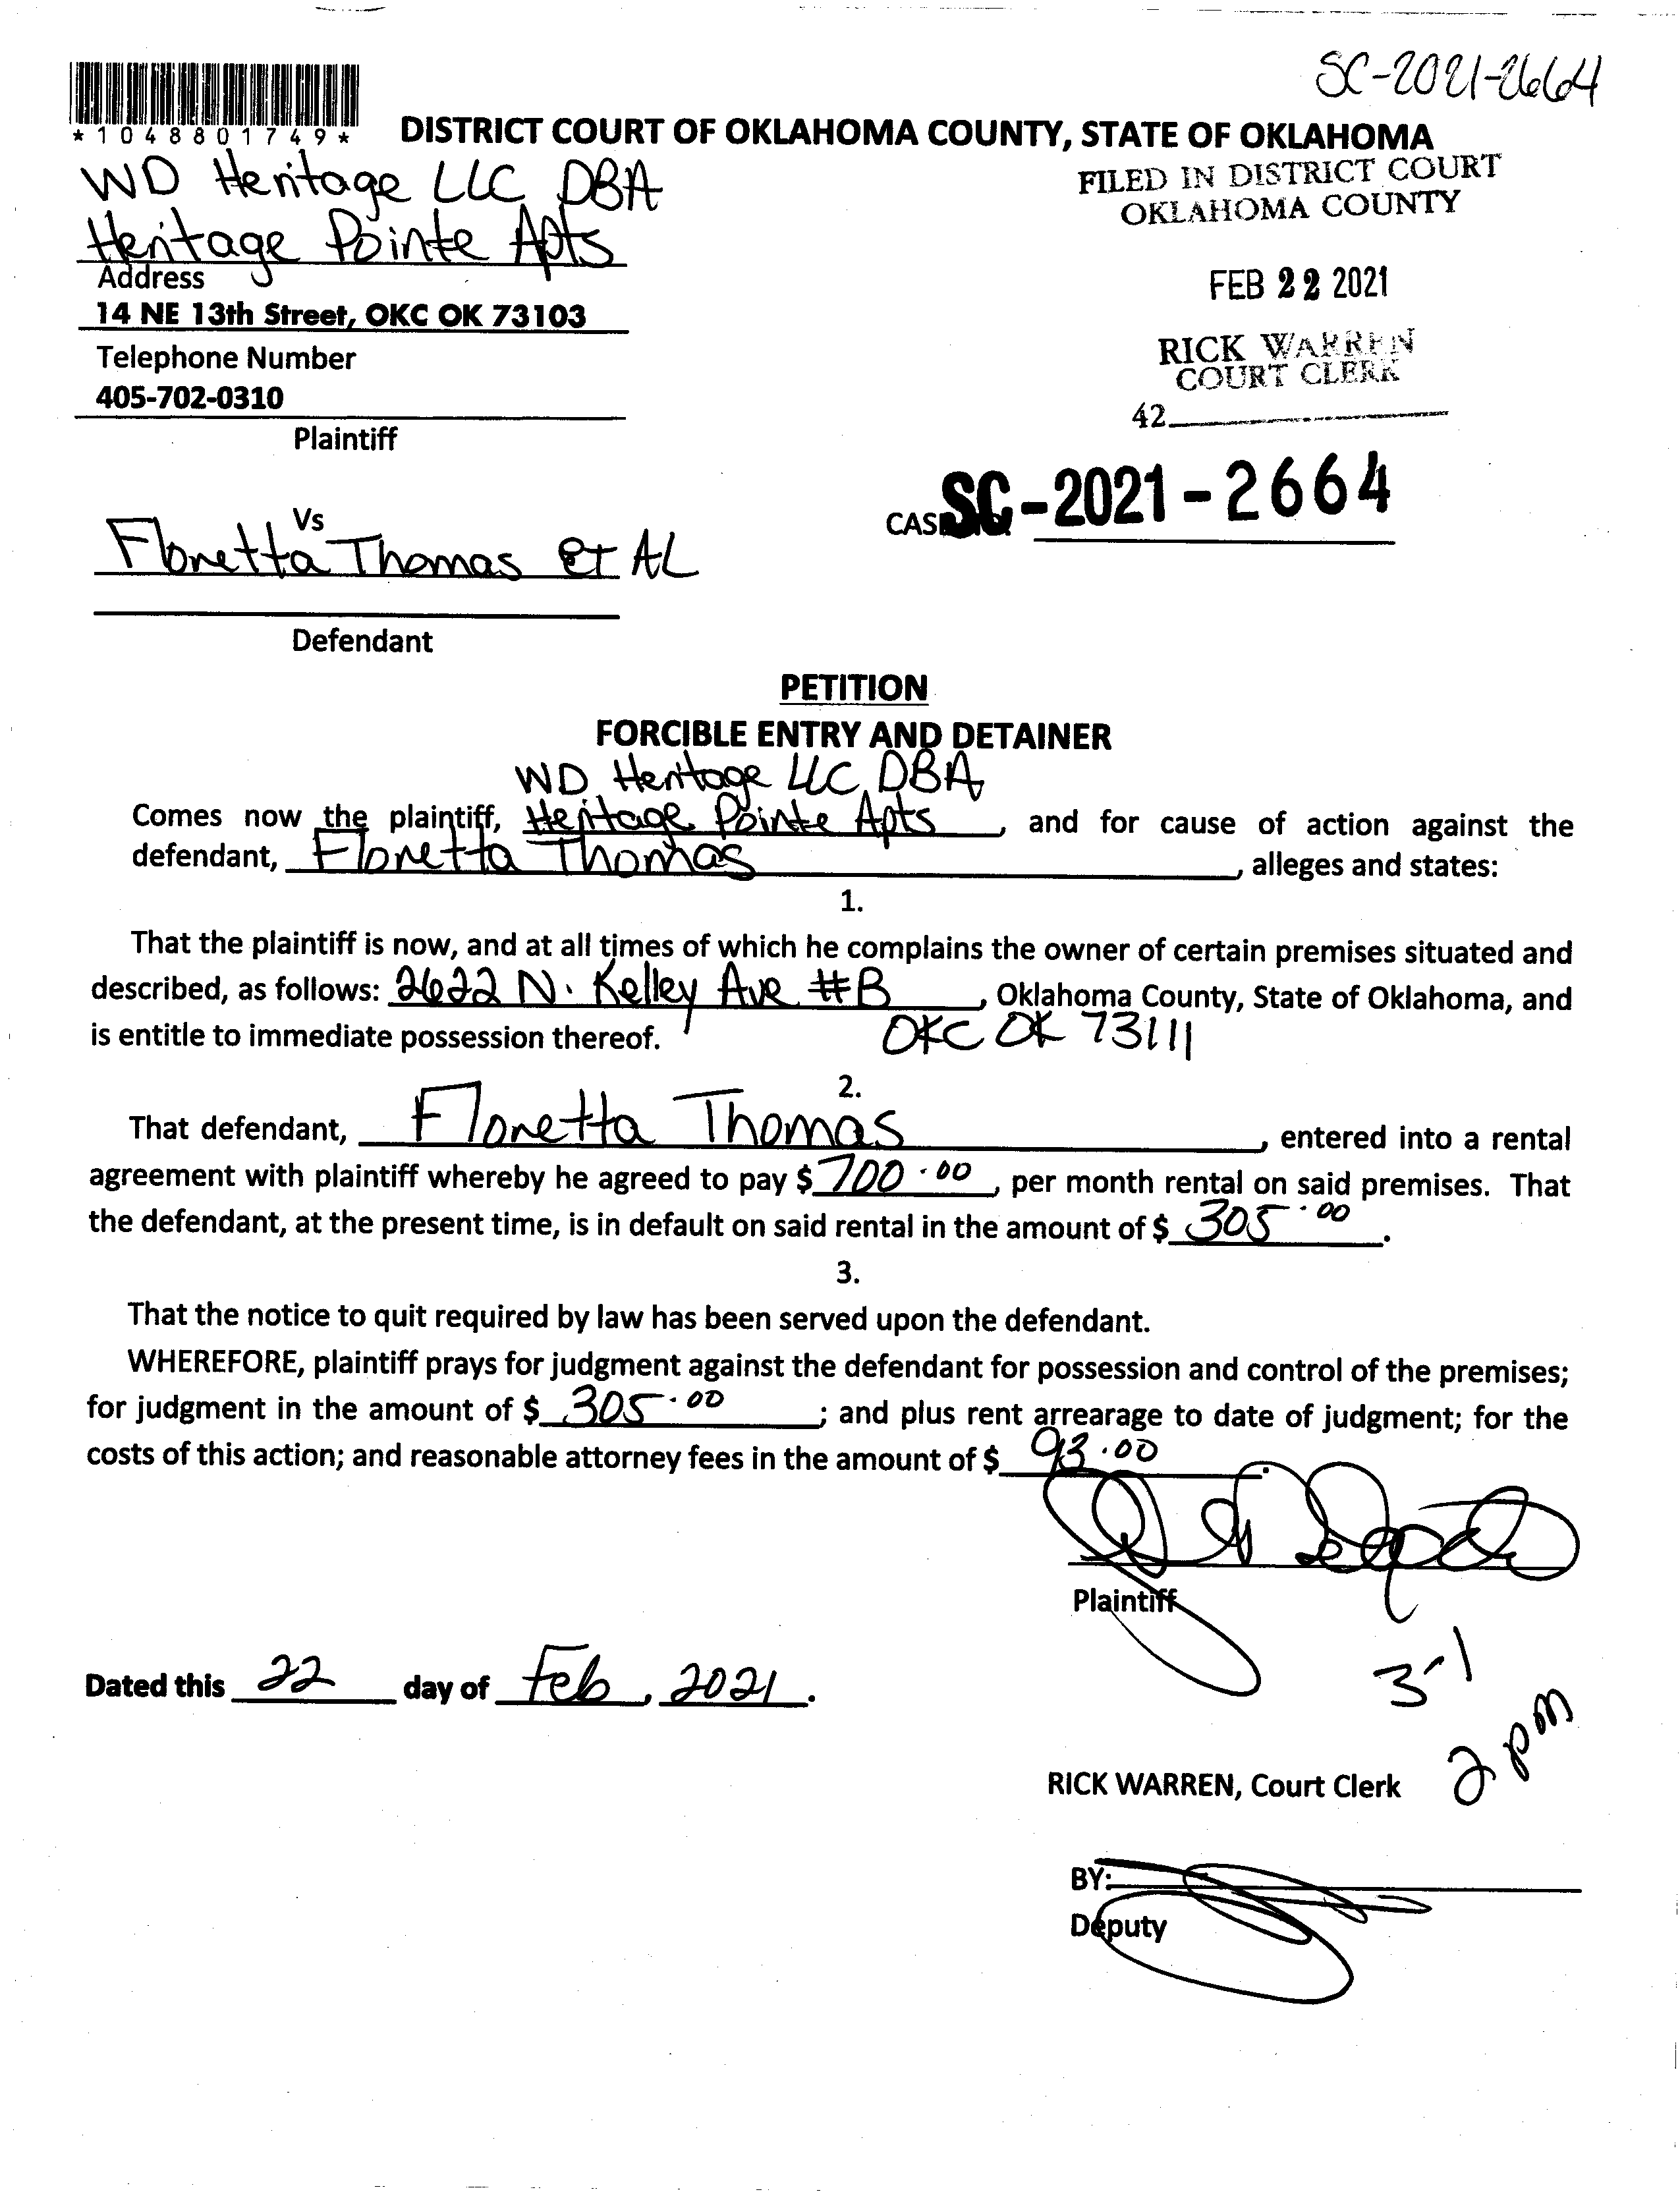 SC-2021-2664
*1048801749*
DISTRICT COURT OF OKLAHOMA COUNTY, STATE OF OKLAHOMA
WD Heritage LLC DBA
Heritage Pointe Apts
FILED IN DISTRICT COURT
OKLAHOMA COUNTY
Address
14 NE 13th Street, OKC OK 73103
FEB 22 2021
Telephone Number
405-702-0310
RICK WARREN
COURT CLERK
42
Plaintiff
Vs
CAS SC-2021-2664
Floretta Thomas Et AL
Defendant
PETITION
FORCIBLE ENTRY AND DETAINER
WD Heritage LLC DBA
Comes now the plaintiff, Heritage Pointe Apts, and for cause of action against the
defendant, Floretta Thomas, alleges and states:
1.
That the plaintiff is now, and at all times of which he complains the owner of certain premises situated and
described, as follows: 2622 N. Kelley Ave #B, Oklahoma County, State of Oklahoma, and
is entitle to immediate possession thereof. OKC OK 73111
2.
That defendant, Floretta Thomas, entered into a rental
agreement with plaintiff whereby he agreed to pay $ 700.00, per month rental on said premises. That
the defendant, at the present time, is in default on said rental in the amount of $ 305.00.
3.
That the notice to quit required by law has been served upon the defendant.
WHEREFORE, plaintiff prays for judgment against the defendant for possession and control of the premises;
for judgment in the amount of $ 305.00; and plus rent arrearage to date of judgment; for the
costs of this action; and reasonable attorney fees in the amount of $ 93.00.
Plaintiff
3-1
Dated this 22 day of Feb, 2021.
2pm
RICK WARREN, Court Clerk
BY:
Deputy